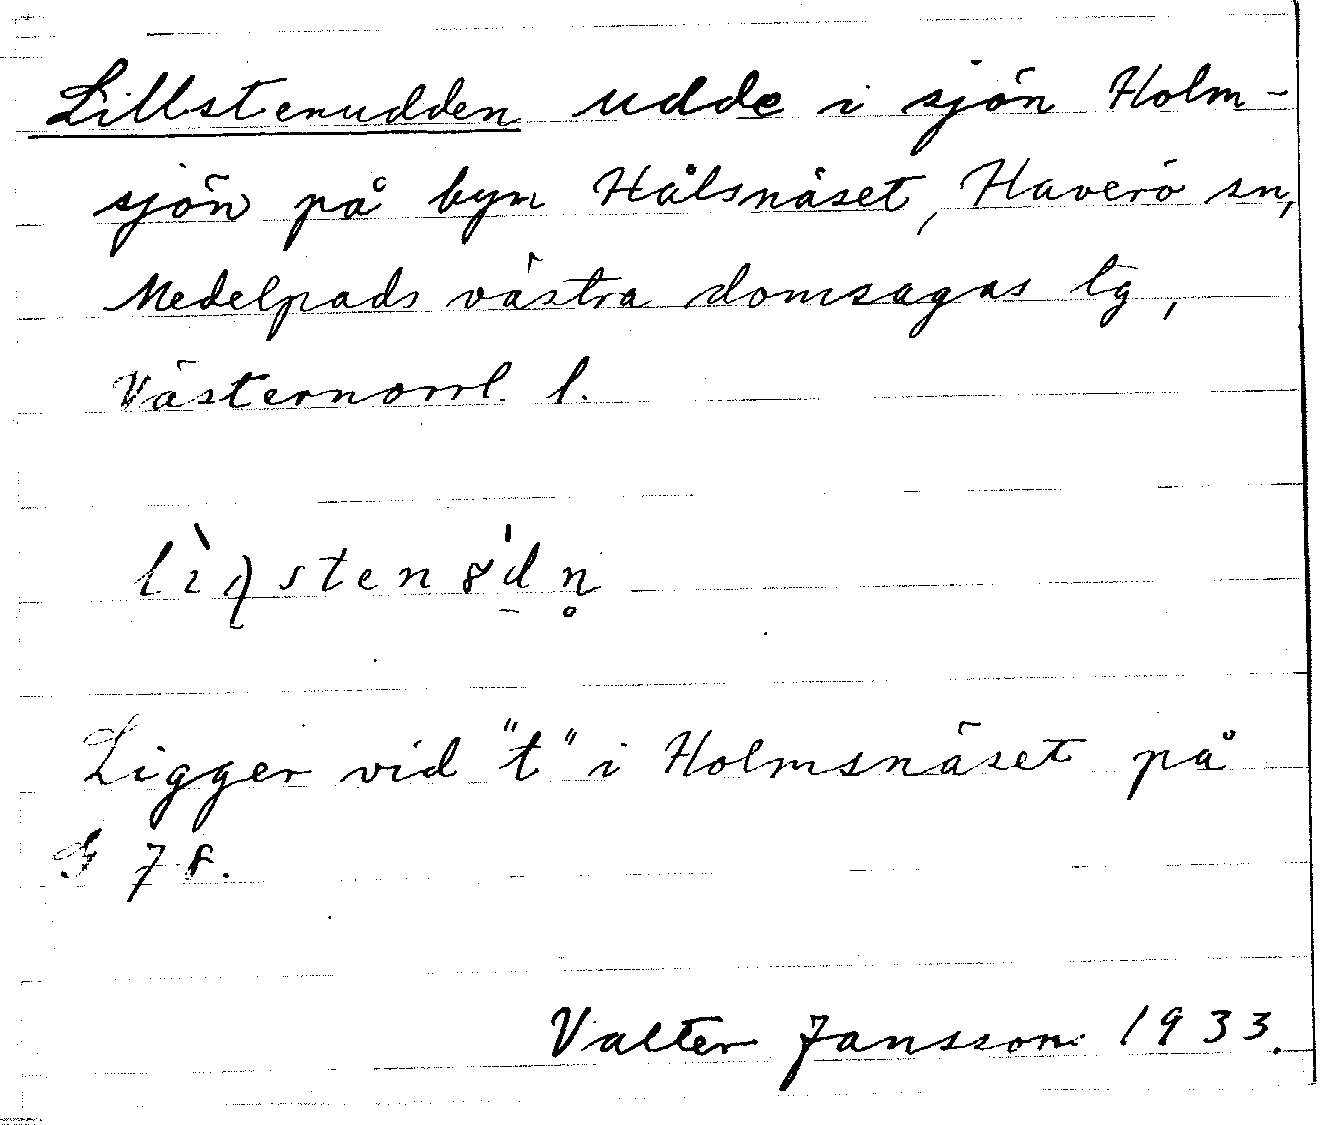 Lillstenudden udde i sjön Holm-
sjön på byn Hålsnäset, Haverö sn,
Medelpads västra domsagas tg,
Västernorrl. l.
Ligger vid "t" i Holmsnäset på
G 78.
Valter Jansson 1933.